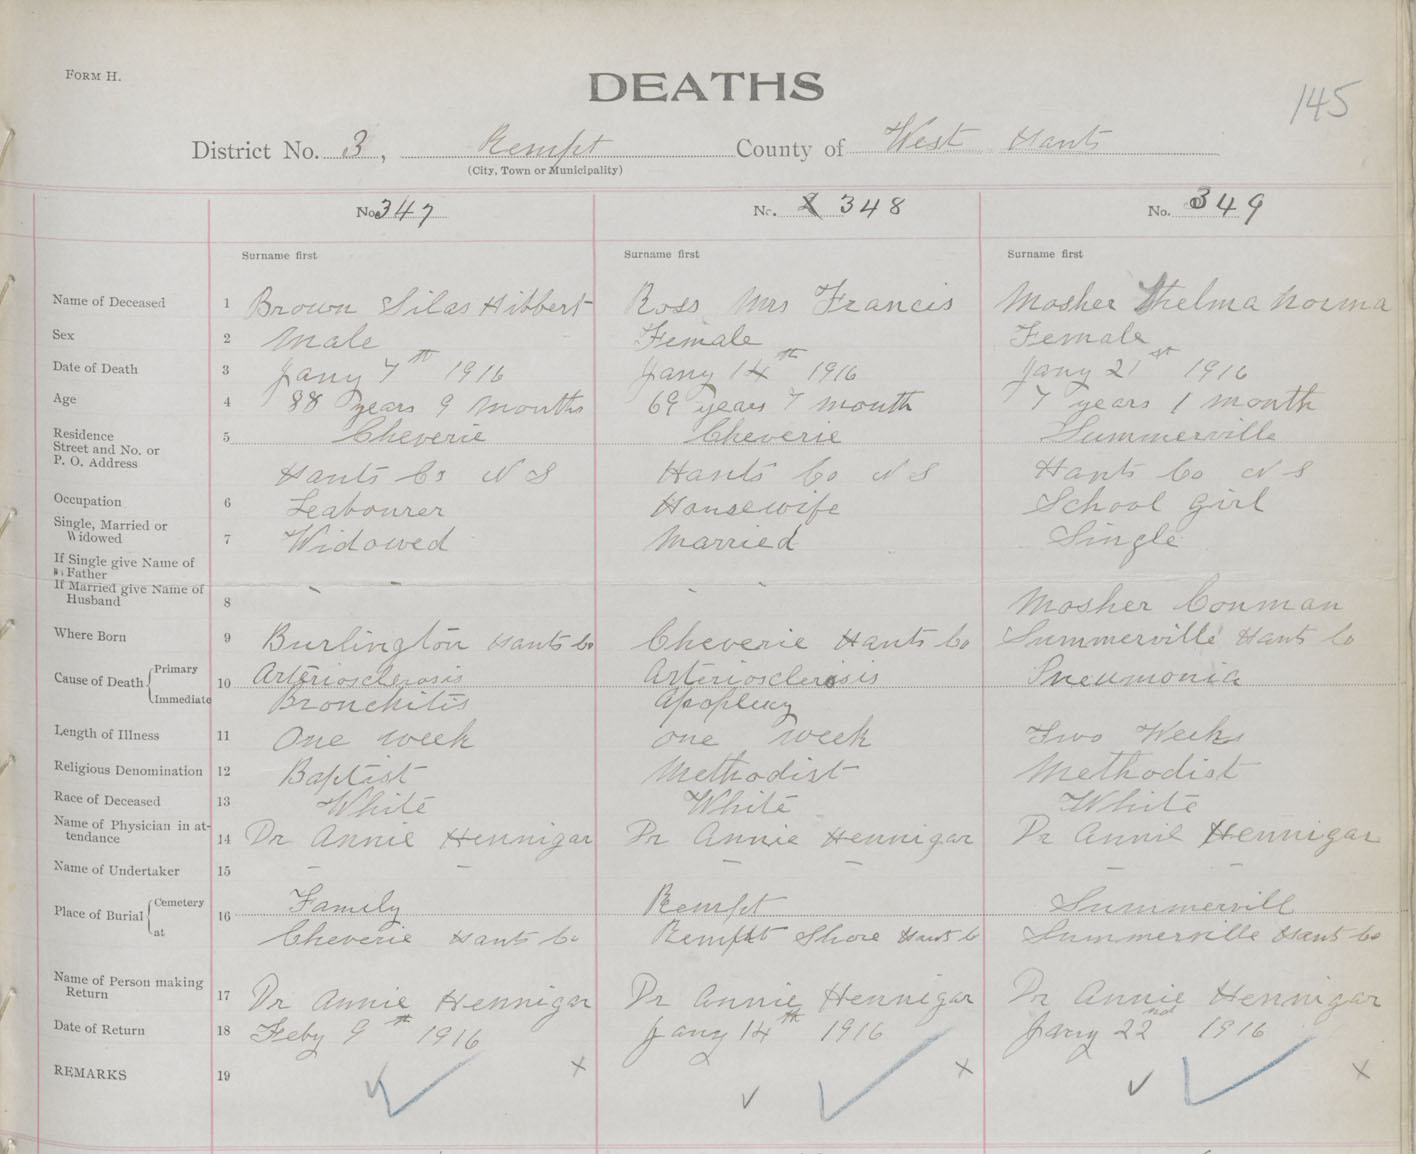 FORM H.
DEATHS
145
District No. 3, Kempt County of West Hants
(City, Town or Municipality)
No. 347 No. 348 No. 349
Surname first Surname first Surname first
Name of Deceased 1 Brown Silas Hibbert Ross Mrs Francis Mosher Thelma Norma
Sex 2 Male Female Female
Date of Death 3 Jany 7th 1916 Jany 14th 1916 Jany 21st 1916
Age 4 88 years 9 months 69 years 7 month 7 years 1 month
Residence
Street and No. or
P. O. Address 5 Cheverie Cheverie Summerville
Hants Co N S Hants Co N S Hants Co N S
Occupation 6 Leabourer Housewife School girl
Single, Married or
Widowed 7 Widowed Married Single
If Single give Name of
Father
If Married give Name of
Husband 8 - - - Mosher Conman
Where Born 9 Burlington Hants Co Cheverie Hants Co Summerville Hants Co
Cause of Death Primary 10 Arteriosclerosis Arteriosclerosis Pneumonia
Immediate Bronchitis Apoplexy
Length of Illness 11 One week one week Two Weeks
Religious Denomination 12 Baptist Methodist Methodist
Race of Deceased 13 White White White
Name of Physician in at-
tendance 14 Dr Annie Hennigar Dr Annie Hennigar Dr Annie Hennigar
Name of Undertaker 15 - - - - - -
Place of Burial Cemetery 16 Family Kempt Summervill
at Cheverie Hants Co Kempt Shore Hants Co Summerville Hants Co
Name of Person making
Return 17 Dr Annie Hennigar Dr Annie Hennigar Dr Annie Hennigar
Date of Return 18 Feby 9th 1916 Jany 14th 1916 Jany 22nd 1916
REMARKS 19 x x x